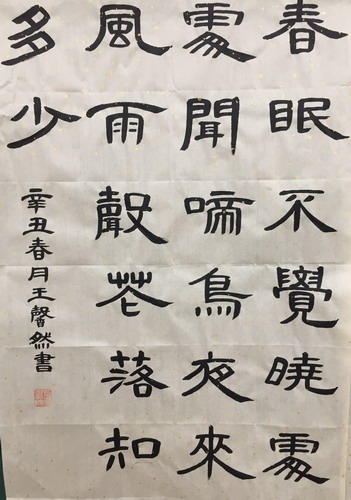 春眠不覺曉處
處聞啼鳥夜來
風雨聲花落知
多少
辛丑春月王馨然書